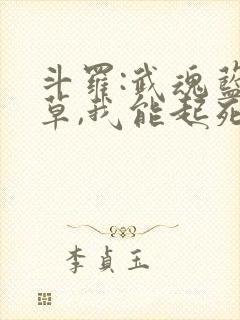 斗羅:武魂藍
草,我能起死
李貞玉